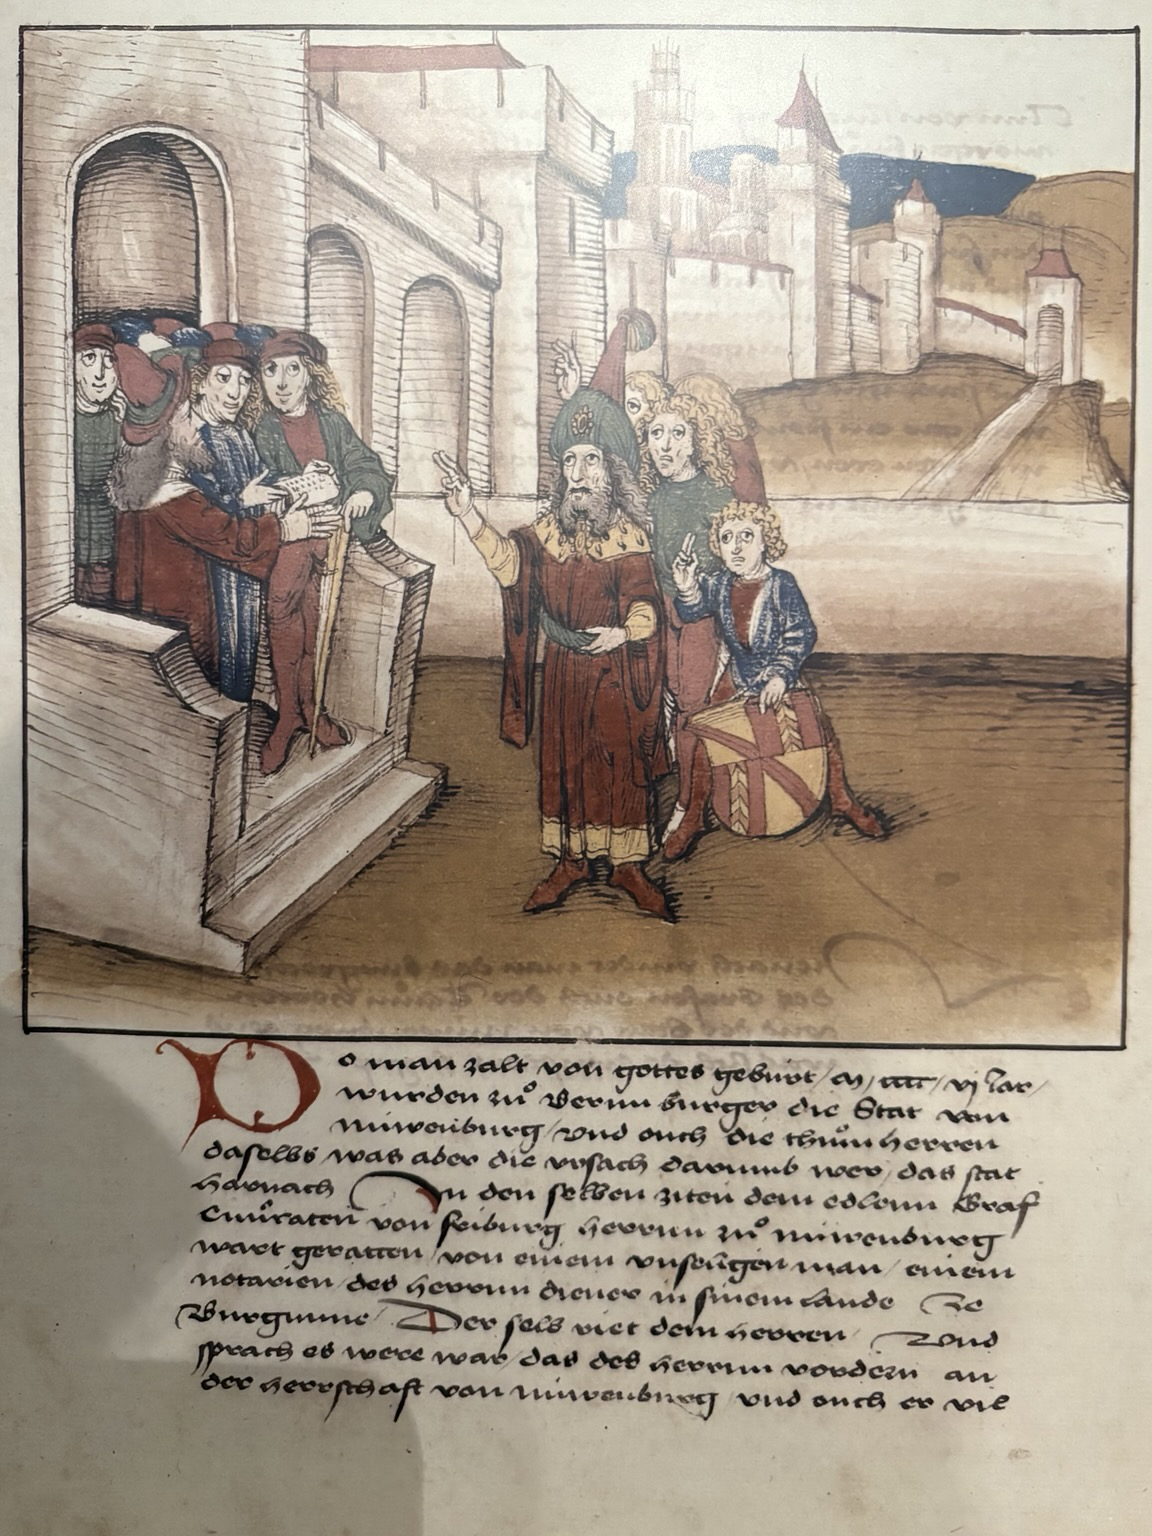 Do man zalt von gottes geburt / m / cccc / vj Jar /
wurden zuͦ Bernn burger die Stat von
nuͥwenburg / vnd ouch die thuͦmherren
daselbs was aber die vrsach darumb wer / das stat
harnach In den selben ziten dem edlenn Graf
Cuͦnraten von friburg herrnn zuͦ nuͥwenburg
wart geratten / von einem vnseligen man / einem
notarien / des herrnn diener in sinem lande ze
Burgunne / Der selb riet dem herren / Vnd
sprach es were war / das des herrnn vordern an
der herrschaft von nuͥwenburg vnd ouch er vil